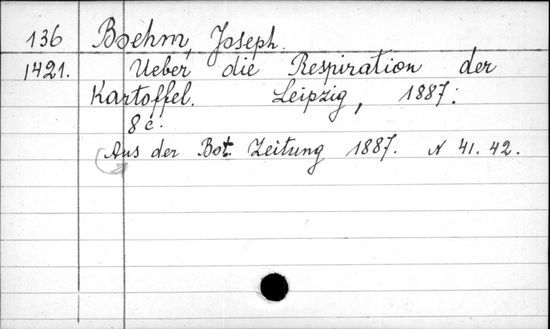 136 Boehm, Joseph.
1421. Ueber die Respiration der
Kartoffel. Leipzig, 1887.
8º.
(Aus der Bot. Zeitung 1887. N 41. 42.